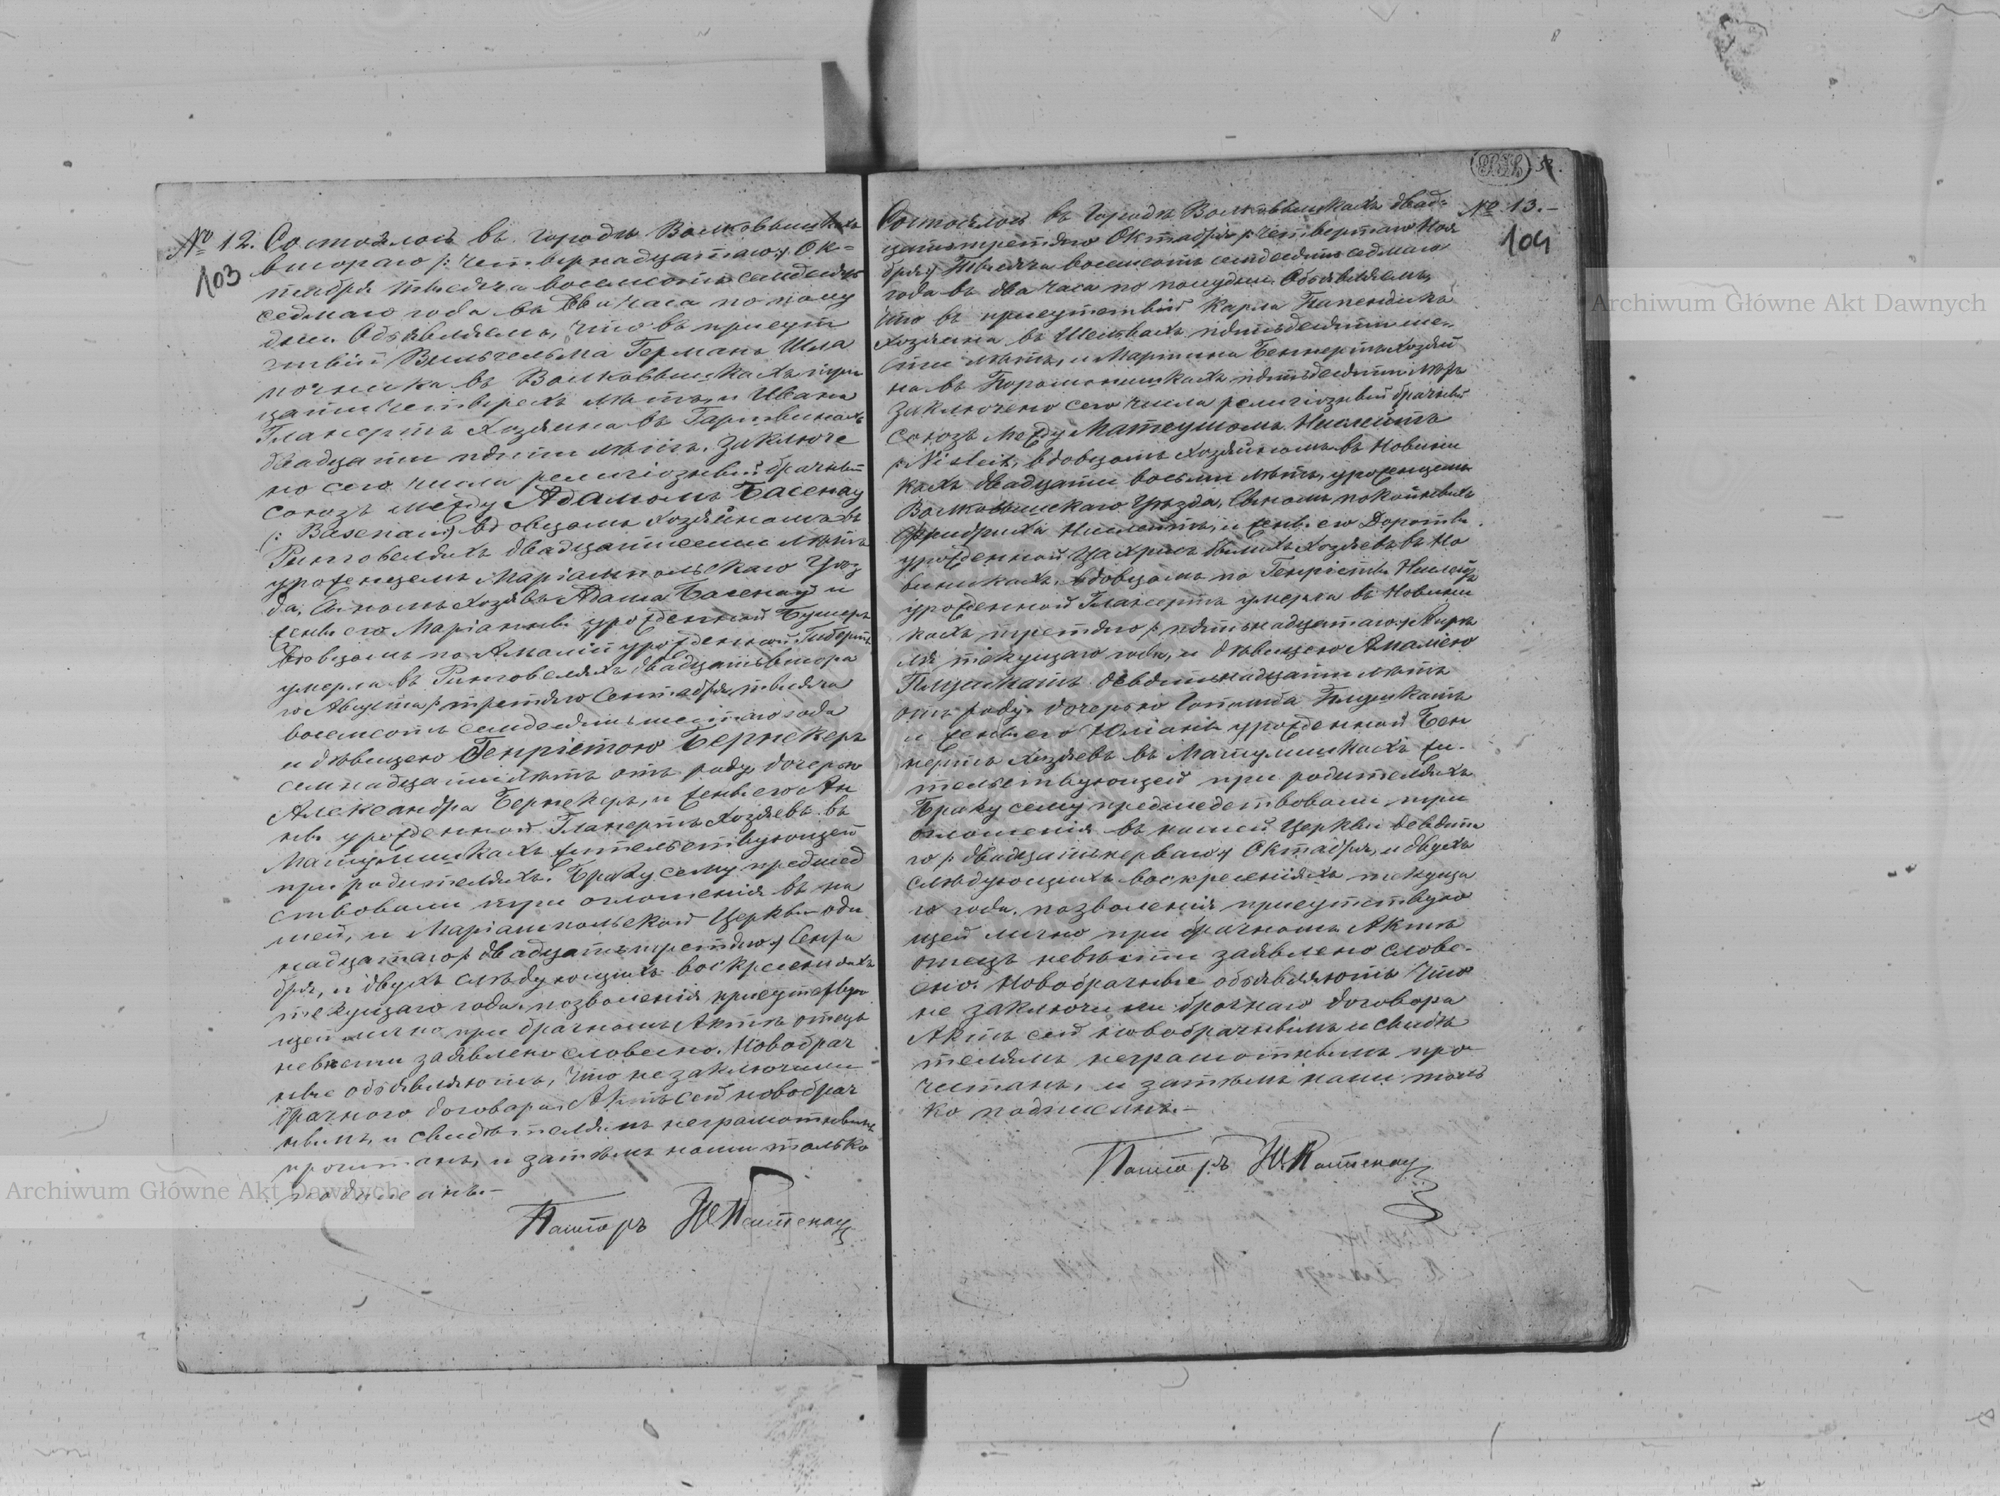 № 12.
103
Состоялось въ городѣ Волковышкахъ
втораго /: четырнадцатаго :/ Ок=
тября тысяча восемьсотъ семдесятъ
седмаго года въ два часа по полу
дни. Объявляемъ, что въ присут
ствіи Вильгельма Германъ Шла
почника въ Волковышкахъ трид
цати четырехъ лѣтъ, и Ивана
Гланертъ хозяина въ
двадцати пяти лѣтъ, заключе
но сего числа религіозный брачный
союзъ между Адамомъ Басенау
(: Basenau :) вдовцомъ хозяйномъ въ
Ринговеляхъ двадцатисеми лѣтъ
уроженцемъ Маріампольскаго Уѣз
да, Сыномъ хозяевъ Адама Басенау и
жены его Маріанны урожденной
Вдовцомъ по Амаліи урожденной
умерла въ Ринговеляхъ, двадцатьвтора
го Августа /: третяго Сентября тысяча
восемсотъ семдесятъ шестаго года
и дѣвицею Генріетою Бернекеръ
семнадцати лѣтъ отъ роду, дочерью
Александра Бернекеръ, и жены его Ан
ны урожденной Гланертъ хозяевъ въ
жительствующей
при родителяхъ. Браку сему предшед
ствовали три оглошенія въ на
шей, и Маріампольской Церквы оди
надцатаго /: двадцатьтретяго :/ Сентя
бря, и двухъ слѣдующихъ воскресенияхъ
текущаго года, позволенія присутству
щей лично при брачномъ Актѣ отецъ
невѣсти заявлено словесно. Новобрач
ные объявляютъ, что не заключили
брачного договора. Актъ сей новобрач
нымъ и свидѣтелямъ неграмотнымъ
прочитанъ, и затѣмъ нами только
подписанъ.-
Пасторъ
№ 13.-
104
Состоялось въ городѣ Волковышкахъ двад=
цатьтретяго Октября /: четвертаго Ноя
бря :/ тысяча восемсотъ семдесятъ седмаго
года въ два часа по полудни. Объявляемъ,
что въ присутствіи Карла Папендикъ
хозяина въ пятьдесятъ ше=
сти лѣтъ, и Мартина Беннертъ хозяй
на въ пятьдесяти лѣтъ
заключено сего числа религіозный брачный
союзъ между Матеушомъ Нислейтъ
/: Nisleit :/ вдовцомъ хозяйномъ въ Новини
кахъ двадцати восьми лѣтъ, уроженцемъ
Волковышскаго Уѣзда, Сыномъ покойныхъ
Фридриха Нислейтъ, и жены его Доротьи
урожденной бывшихъ хозяевъ въ Но
виникахъ, вдовцомъ по Генріетѣ Нислейтъ
урожденной Гланертъ умерла въ Новини
кахъ третяго /: пятьнадцатаго :/ Апрѣ
ля текущаго года, и дѣвицею Амаліею
девятьнадцати лѣтъ
отъ роду, дочерью Готлиба
и жены его Юліаны урожденной Бен
нертъ хозяевъ въ жи=
тельствующей при родителяхъ
Браку сему предшедствовали три
оглошенія въ нашей Церквы девята
го /: двадцатьперваго :/ Октября, и двухъ
слѣдующихъ воскресеніяхъ текуща
го года, позволенія присутствую
щей лично при брачномъ Актѣ
отецъ невѣсти заявлено слове=
сно. Новобрачные объявляютъ что
не заключили брачнаго договора
Актъ сей новобрачнымъ и свидѣ
телямъ неграмотнымъ про
читанъ, и затѣмъ нами толь
ко подписанъ.-
Пасторъ
Archiwum Główne Akt Dawnych
Archiwum Główne Akt Dawnych